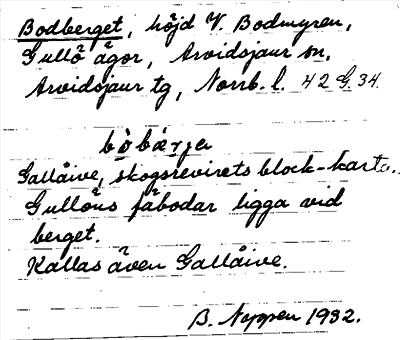 Bodberget, höjd V. Bodmyren,
Gullö ägor, Arvidsjaur sn,
Arvidsjaur tg, Norrb. l. 42 G. 34.
bòbærja
Gallåive, skogsrevirets block-karta.
Gullöns fäbodar ligga vid
berget.
Kallas även Gallåive.
B. Noppen 1932.